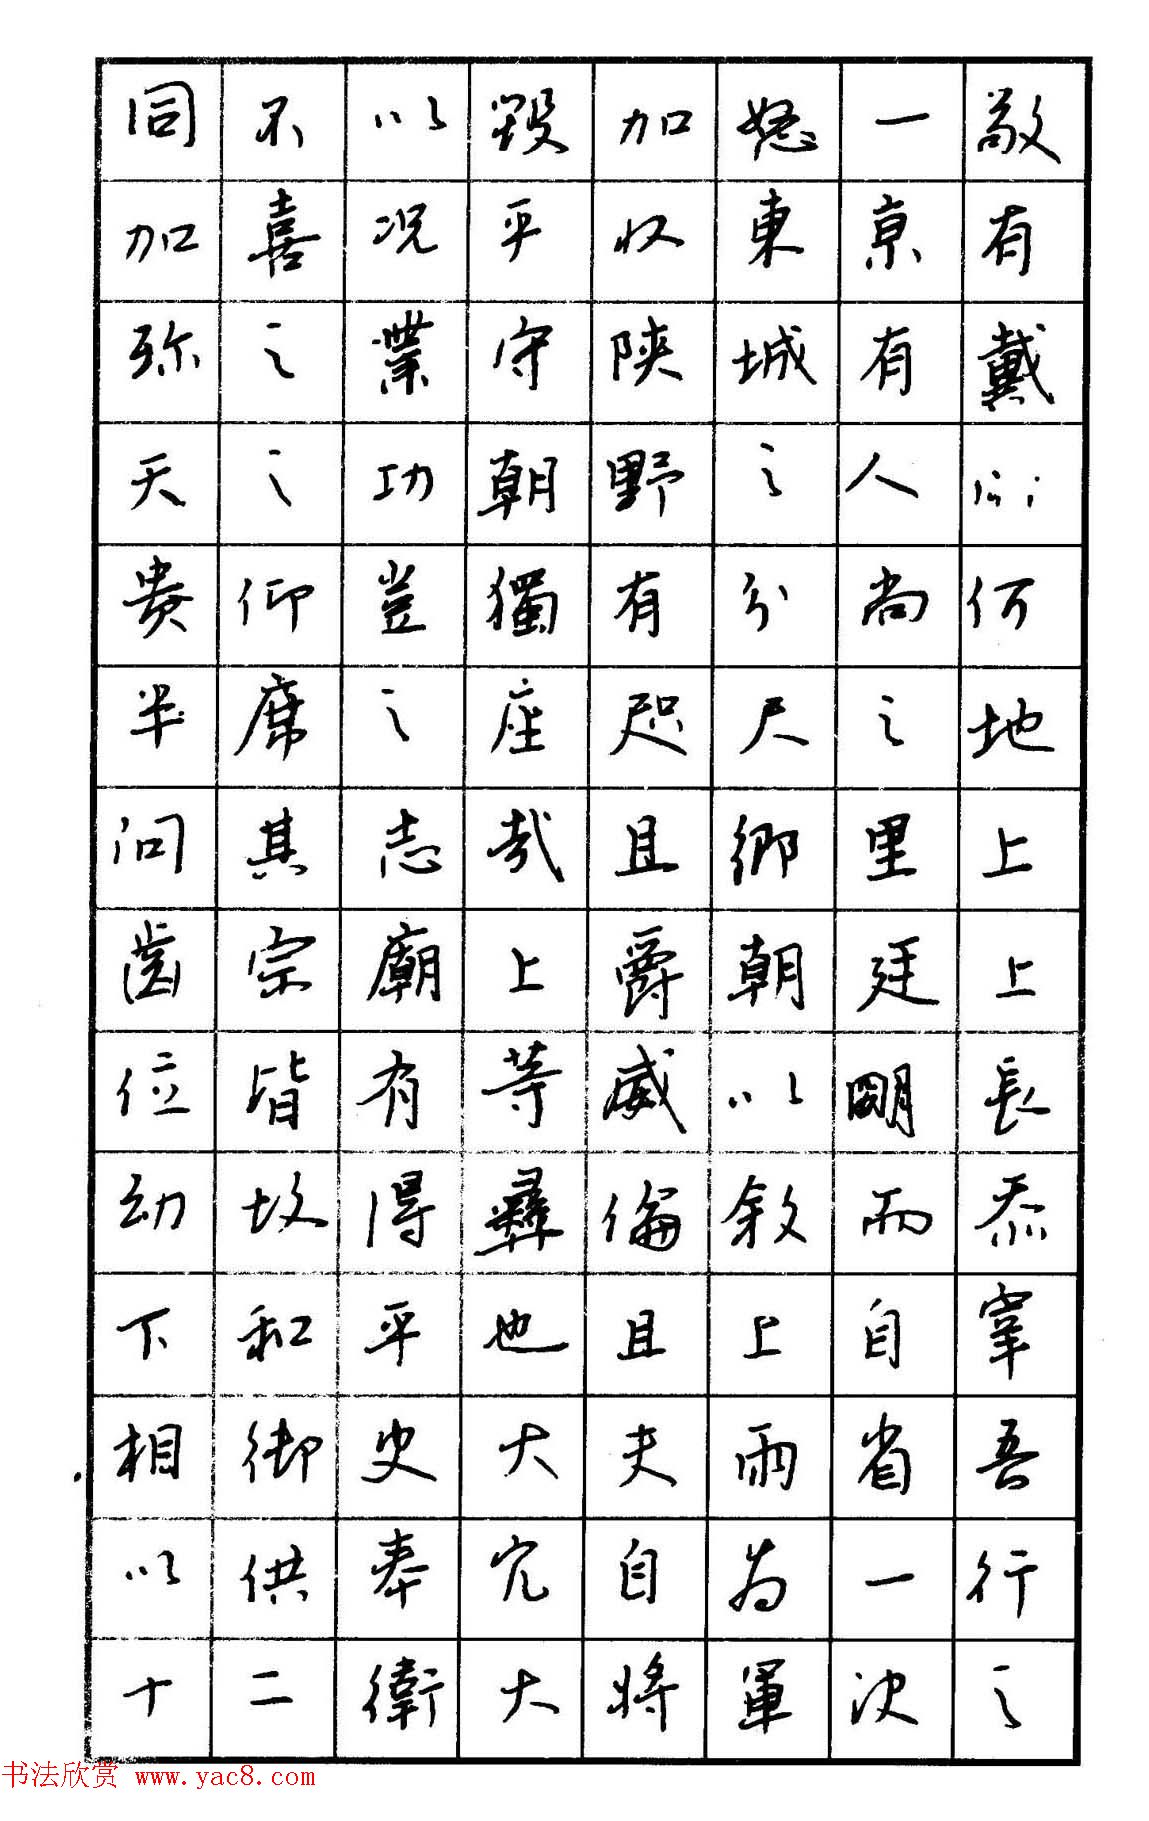 同不以毀加怒一敬
加喜況平收東京有
弥之業守陝城有戴
天之功朝野之人所
貴仰豈獨有分尚何
半席之座咫尺之地
问其志哉且鄉里上
齒宗廟上爵朝廷上
位皆有等威以明長
幼故得彝倫敘而忝
下和平也且上自宰
相御史大夫兩省吾
以供奉官自為一行
十二衛大將軍次之
书法欣赏 www.yac8.com